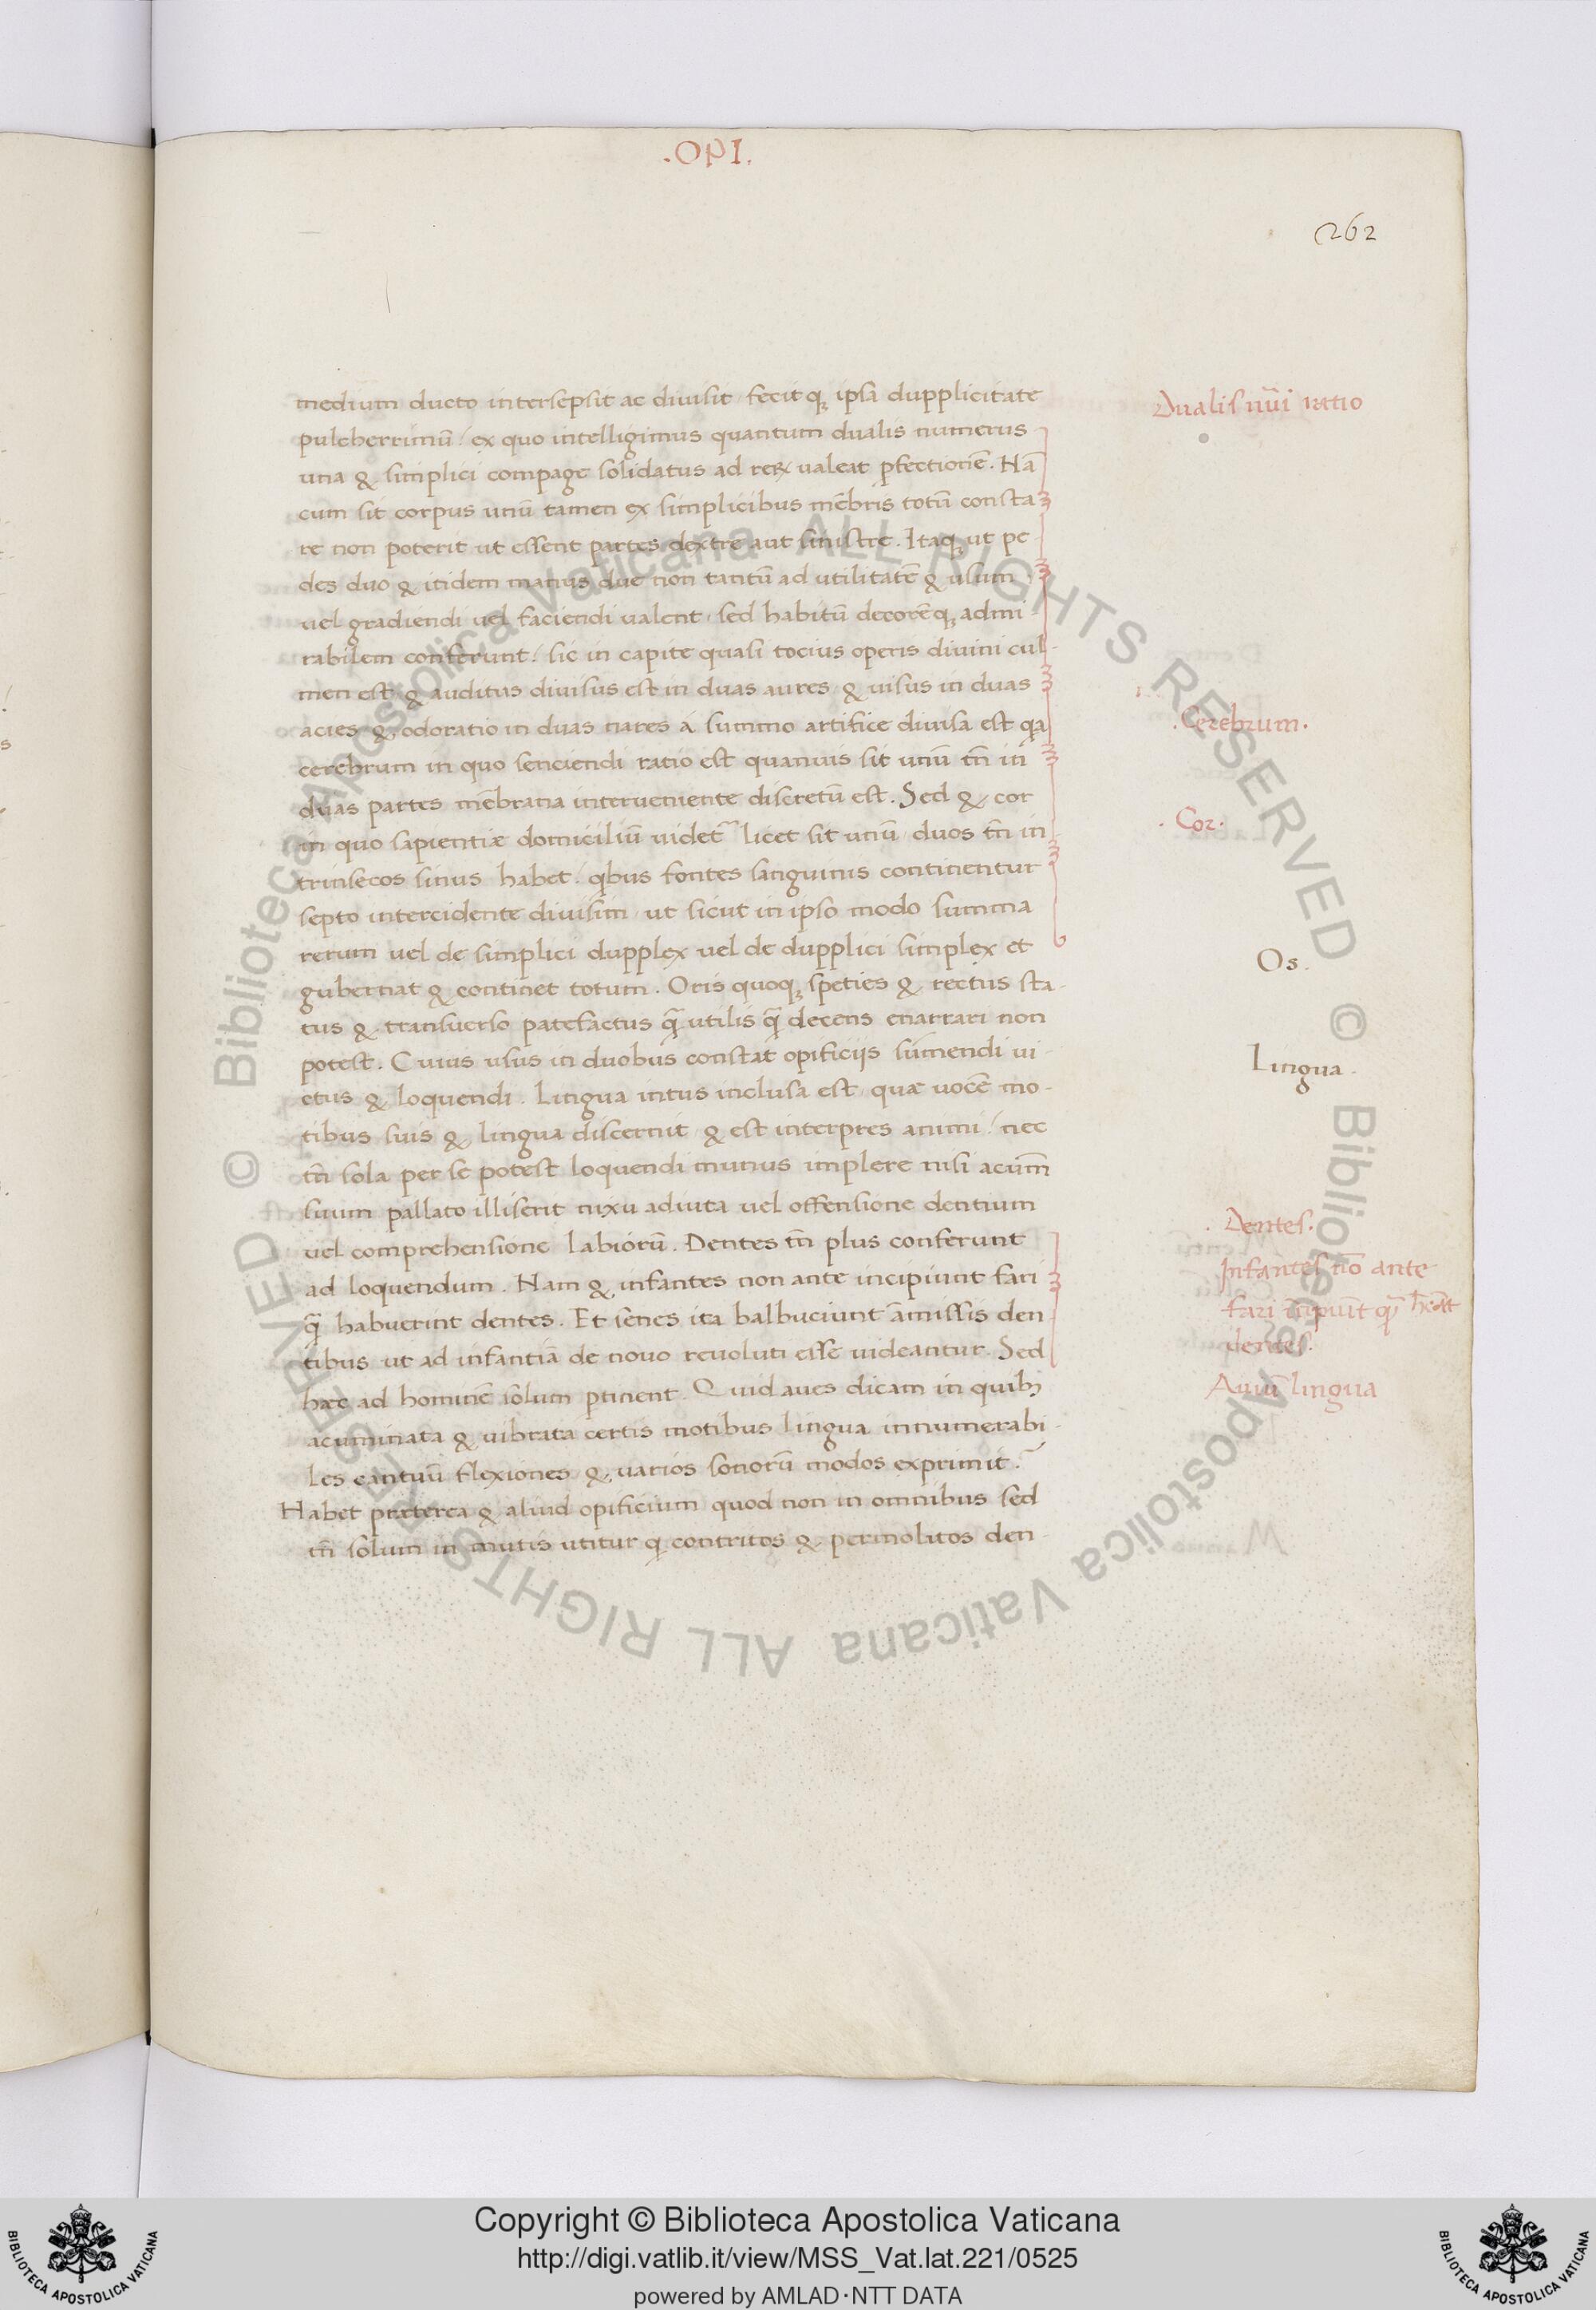 .OPI.
262
medium ducto intersepsit ac diuisit fecitq; ipsā dupplicitate
pulcherrimū / ex quo intelligimus quantum dualis numerus
una & simplici compage solidatus ad reꝝ valeat ꝑfectionē. Nā
cum sit corpus unū tamen ex simplicibus mēbris totū consta
re non poterit ut essent partes dextre aut sinistre. Itaq; ut pe-
des duo & itidem manus due non tantū ad utilitatē & usum
uel gradiendi uel faciendi ualent, sed habitū decorēq; admi-
rabilem conferunt: sic in capite quasi tocius operis diuini cul-
men est, & auditus diuisus est in duas aures & uisus in duas
acies & odoratio in duas nares á summo artifice diuisa est qa
cerebrum in quo senciendi ratio est quamuis sit unū tn̄ in
duas partes mēbrana interueniente discretū est. Sed & cor
in quo sapientiæ domiciliū uidet᷑ licet sit unū duos tn̄ in
trinsecos sinus habet. qbus fontes sanguinis continentur
septo intercidente diuisim, ut sicut in ipso modo summa
rerum uel de simplici dupplex uel de dupplici simplex et
gubernat & continet totum. Oris quoq; speties & rectus sta-
tus & transuerso patefactus q̄ utilis q̄ decens enarrari non
potest. Cuius usus in duobus constat opificiis sumendi ui-
ctus & loquendi. Lingua intus inclusa est, quæ uocē mo-
tibus suis & lingua discernit, & est interpres animi / nec
tn̄ sola per se potest loquendi munus implere nisi acum̄
suum pallato illiserit nixu adiuta uel offensione dentium
uel comprehensione labiorū. Dentes tn̄ plus conferunt
ad loquendum. Nam & infantes non ante incipiunt fari
q̄ habuerint dentes. Et senes ita balbuciunt amissis den-
tibus ut ad infantiā de nouo reuoluti esse uideantur. Sed
hæc ad hominē solum ꝑtinent. Quid aues dicam in quibꝫ
acuminata & vibrata certis motibus lingua innumerabi-
les cantuū flexiones & varios sonorū modos exprimit?
Habet præterea & aliud opificium quod non in omnibus sed
tn̄ solum in mutis utitur q contritos & permolitos den-
Dualis nūi ratio
.Cerebrum.
. Cor.
Os.
Lingua.
. Dentes.
Infantes nō ante
fari īcipiūt
dentes.
Auiū lingua
Copyright © Biblioteca Apostolica Vaticana
http://digi.vatlib.it/view/MSS_Vat.lat.221/0525
powered by AMLAD·NTT DATA
BIBLIOTECA APOSTOLICA VATICANA
BIBLIOTECA APOSTOLICA VATICANA
© Biblioteca Apostolica Vaticana ALL RIGHTS RESERVED © Biblioteca Apostolica Vaticana ALL RIGHTS RESERVED